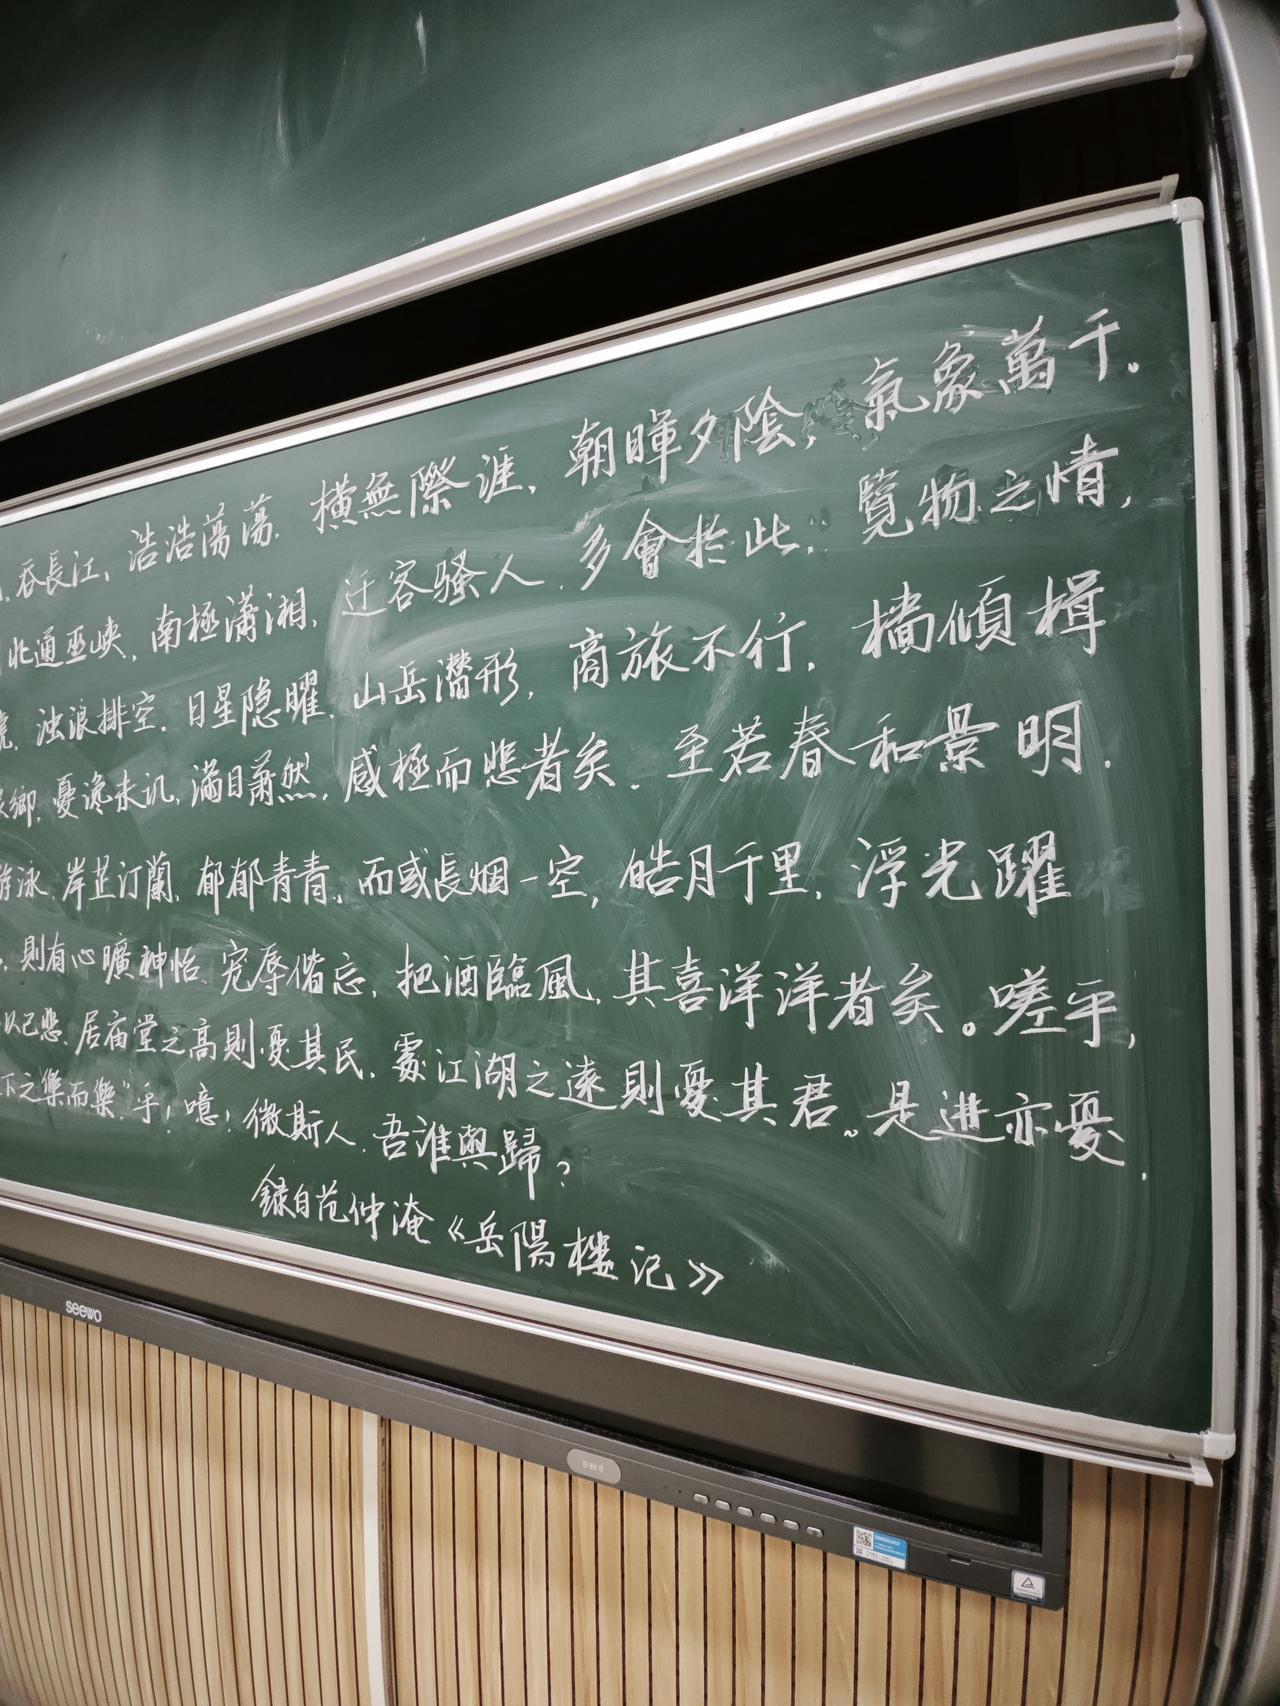 吞長江、浩浩蕩蕩.橫無際涯、朝暉夕陰,氣象萬千。
北通巫峽、南極瀟湘、迁客骚人.多會於此.覽物之情,
濁浪排空.日星隐曜.山岳潛形,商旅不行.檣傾楫
鄉,憂讒来讥,滿目萧然,感極而悲者矣.至若春和景明.
游泳.岸芷汀蘭.郁郁青青.而或長烟一空,皓月千里.浮光躍
則有心曠神怡.宠辱偕忘,把酒臨風.其喜洋洋者矣。嗟乎,
以己悲.居庙堂之高則憂其民.處江湖之遠則憂其君。是進亦憂.
下之樂而樂"乎!噫!微斯人.吾誰與歸?
錄自范仲淹《岳陽樓记》
seewo